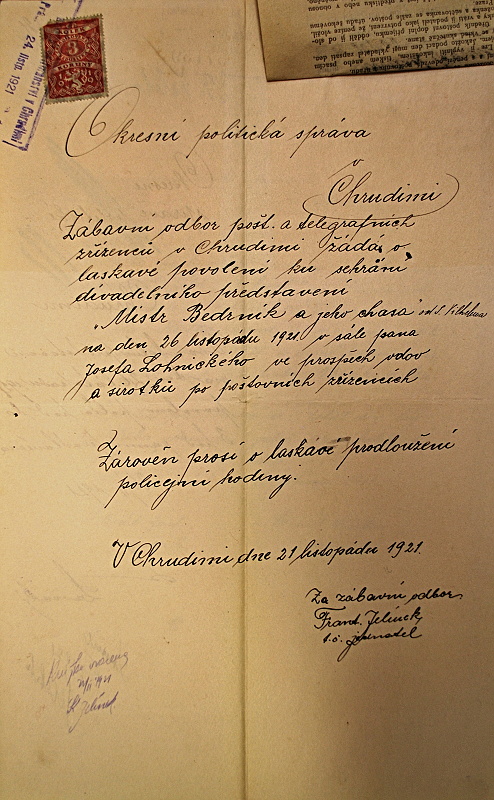 24. listo. 1921
3
Okresní politická správa
v
Chrudimi
Zábavní odbor pošt. a telegrafních
zřízenců v Chrudimi žádá o
laskavé povolení ku sehrání
divadelního představení
"Mistr Bedrník a jeho chasa" od
na den 26 listopádu 1921 v sále pana
Josefa Lohnického ve prospěch vdov
a sirotků po poštovních zřízencích
Zároveň prosí o laskávé prodloužení
policejní hodiny.
V Chrudimi, dne 21 listopádu 1921.
Za zábavní odbor
Frant. Jelínek
t. č. jednatel